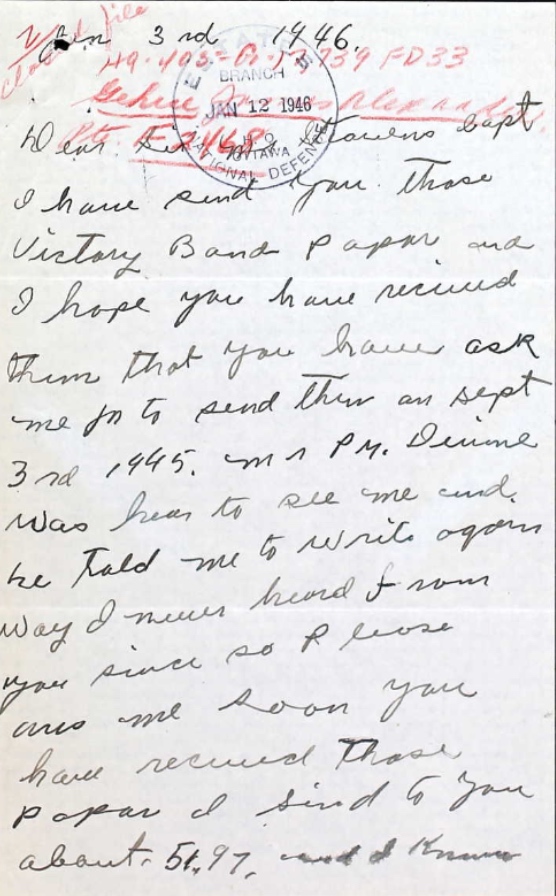 Jan 3rd 1946.
HQ. 405-G-17,739 FD33
ESTATES
BRANCH
JAN 12 1946
H.Q.
OTTAWA
NATIONAL DEFENCE
Pte. F-2468
Dear Sir Mr Stevens Capt
I have send you those
Victory Band papar and
I hope you have recived
them that you have ask
me fr to send them on Sept
3rd 1945. Mr P.M. Devine
was hear to see me and.
he told me to write again
way I never heard from
you since so Please
ans me soon you
have recived those
papar I Send to you
about. 51,97, and I Know